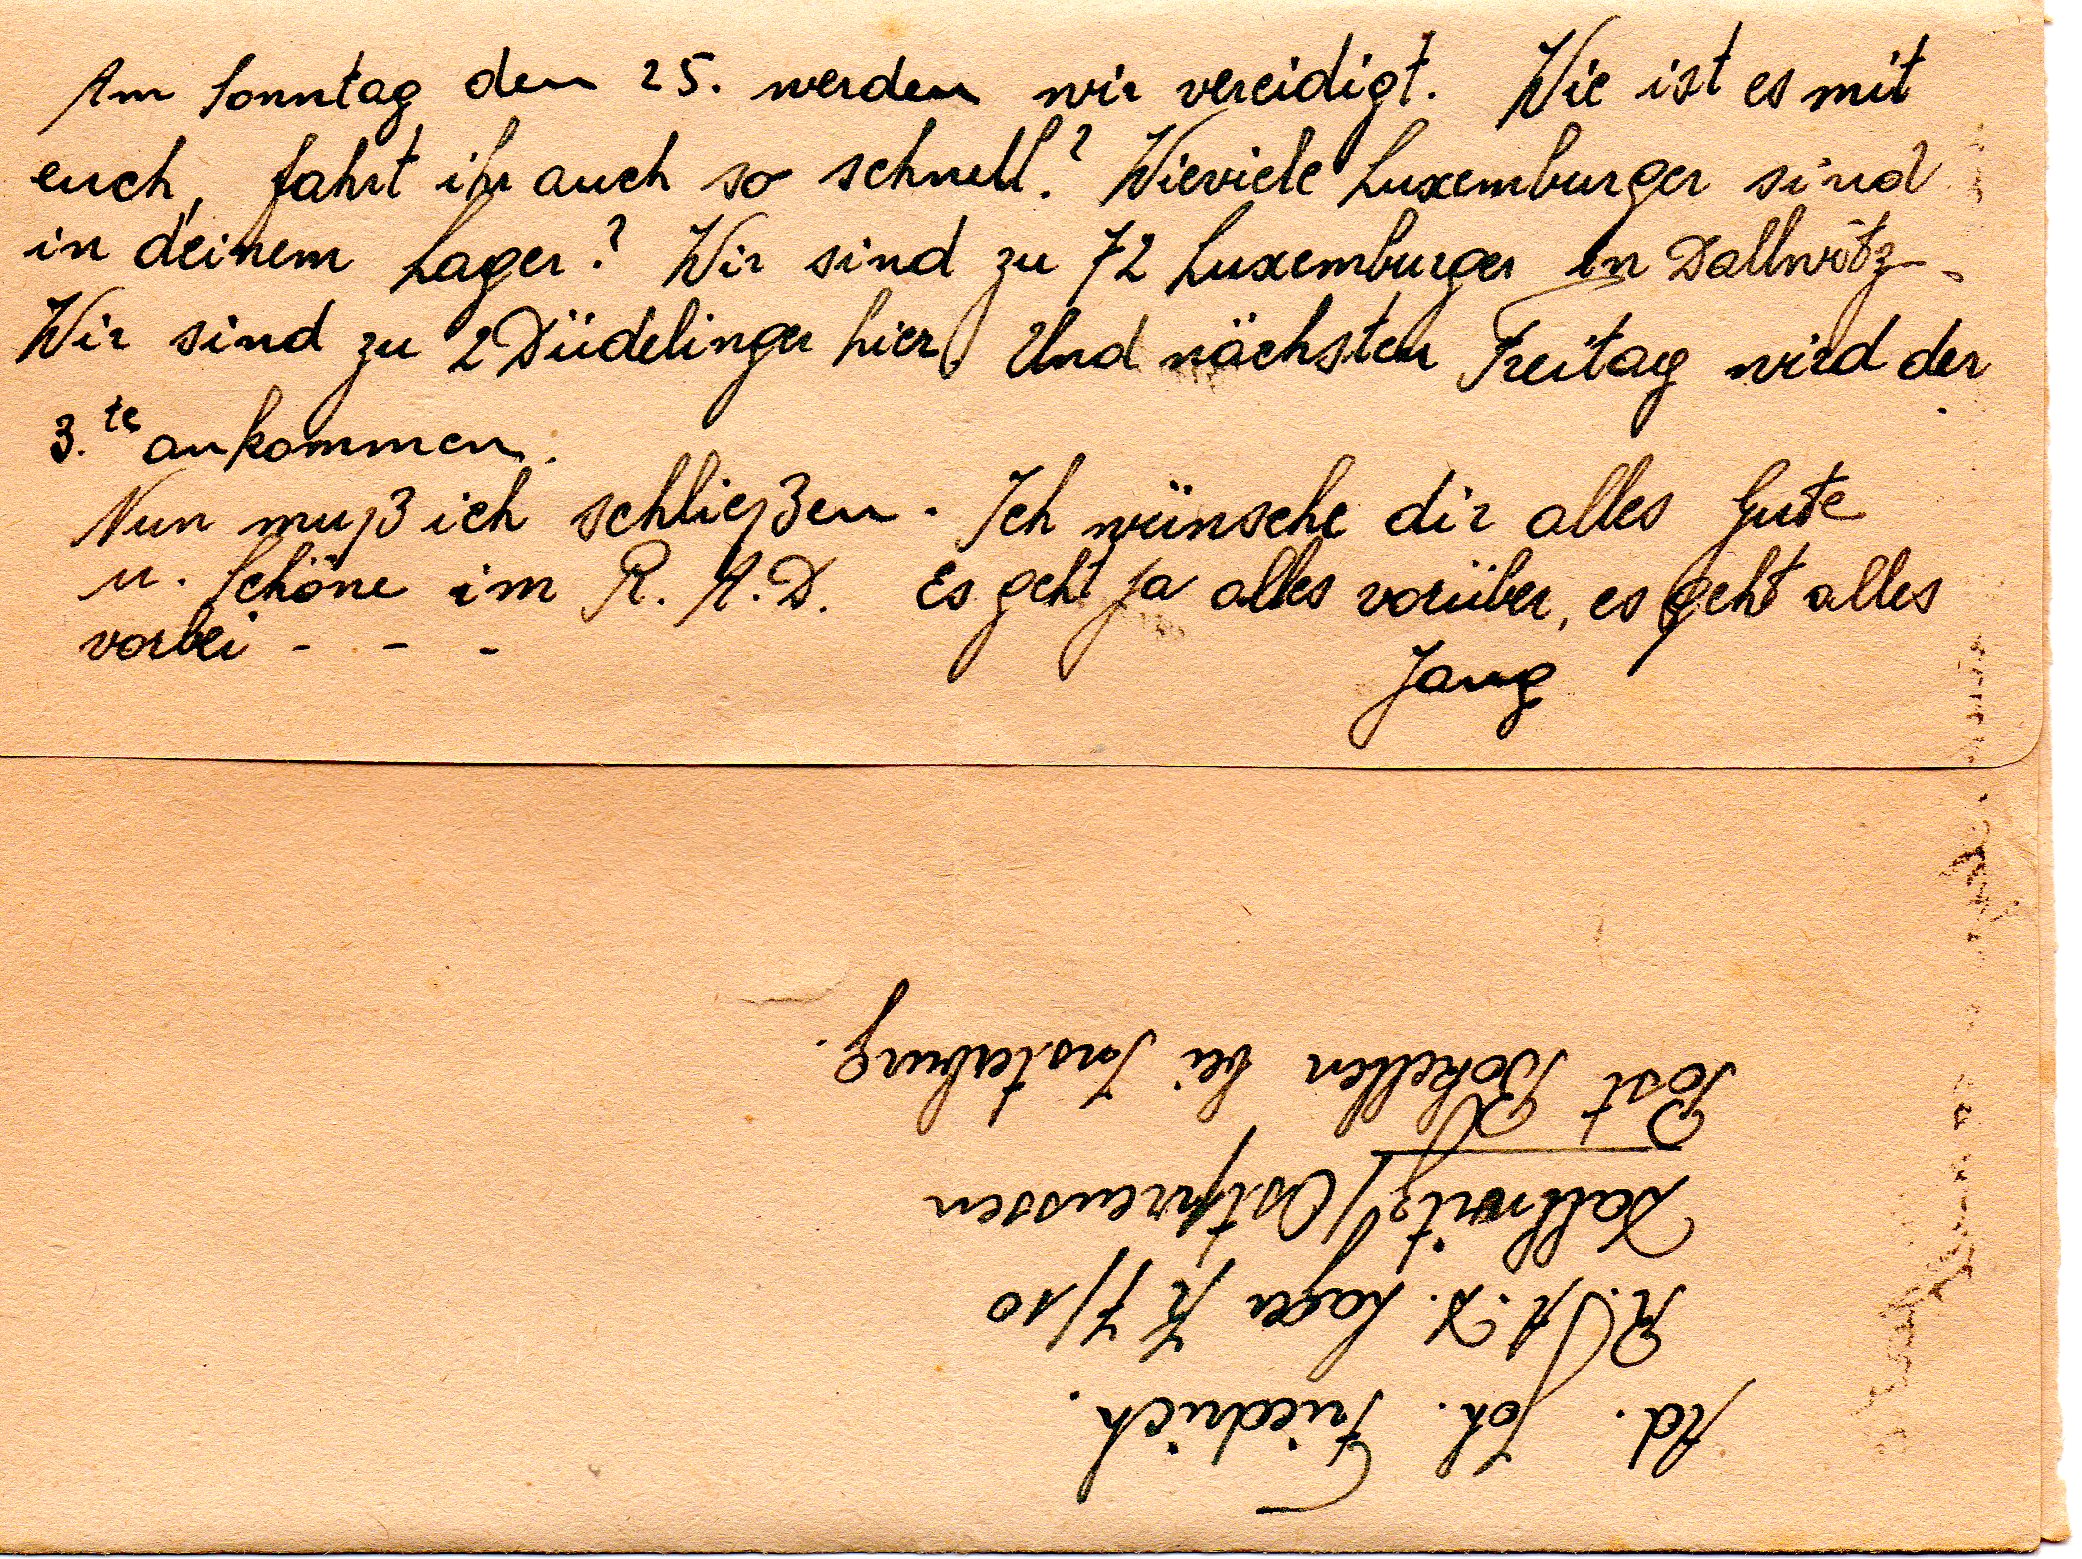 Am Sonntag den 25. werden wir vereidigt. Wie ist es mit
euch, fahrt ihr auch so schnell? Wieviele Luxemburger sind
in deinem Lager? Wir sind zu 72 Luxemburger in Dallwitz.
Wir sind zu 2 Düdelinger hier. Und nächsten Freitag wird der
3.te ankommen.
Nun muß ich schließen. Ich wünsche dir alles Gute
u. Schöne im R.A.D. Es geht ja alles vorüber, es geht alles
vorbei - - -
Jang
Ad. Joh. Friedrich.
R.A.D. Lager K 7/10
Dallwitz/Ostpreussen
Post Bokellen bei Insterburg.